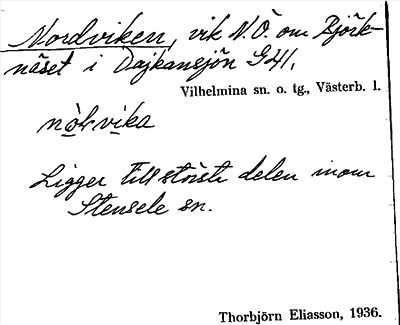 Nordviken, vik N.Ö. om Björk-
näset i Dajkanesjön G41.
Vilhelmina sn. o. tg., Västerb. l.
no̠rvi̠ka
Ligger till största delen inom
Stensele sn.
Thorbjörn Eliasson, 1936.